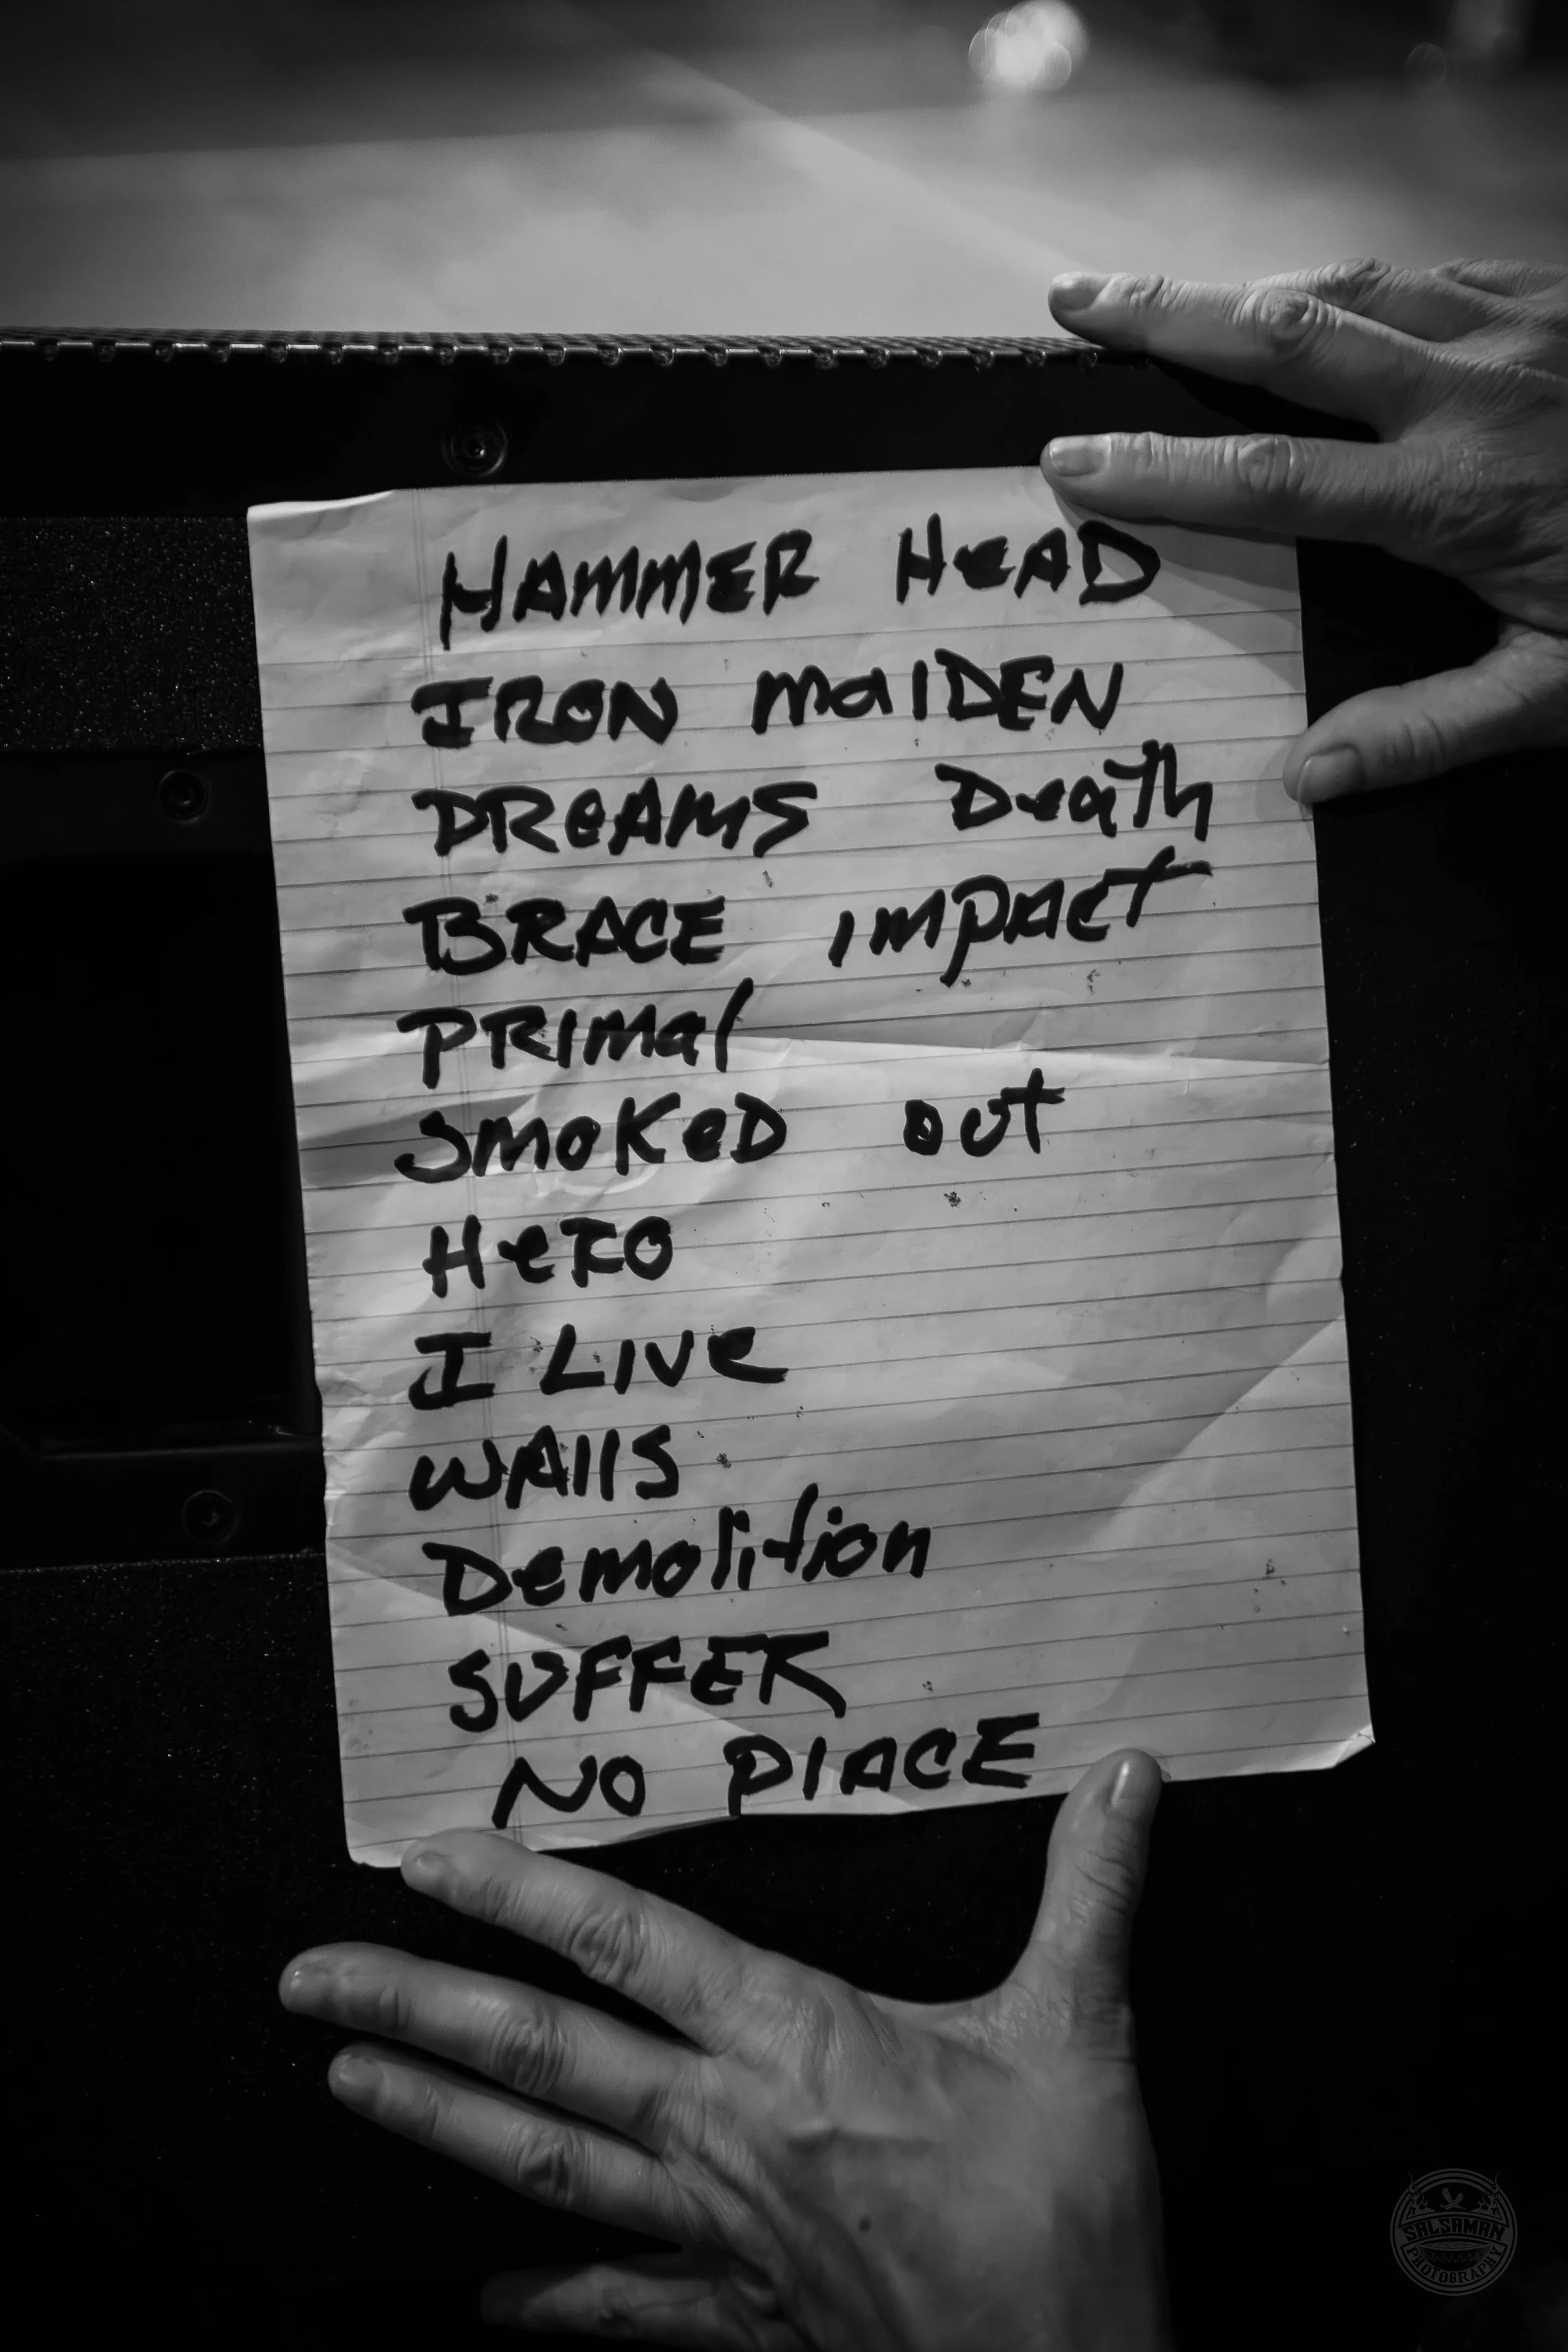 HAMMER HeAD
IRON maIDEN
DReAMS Death
BRACE impact
PRImal
SmoKeD out
HeRO
I LIVe
WAllS
Demolition
SUFFER
NO PlACE
SALSAMAN
PHOTOGRAPHY